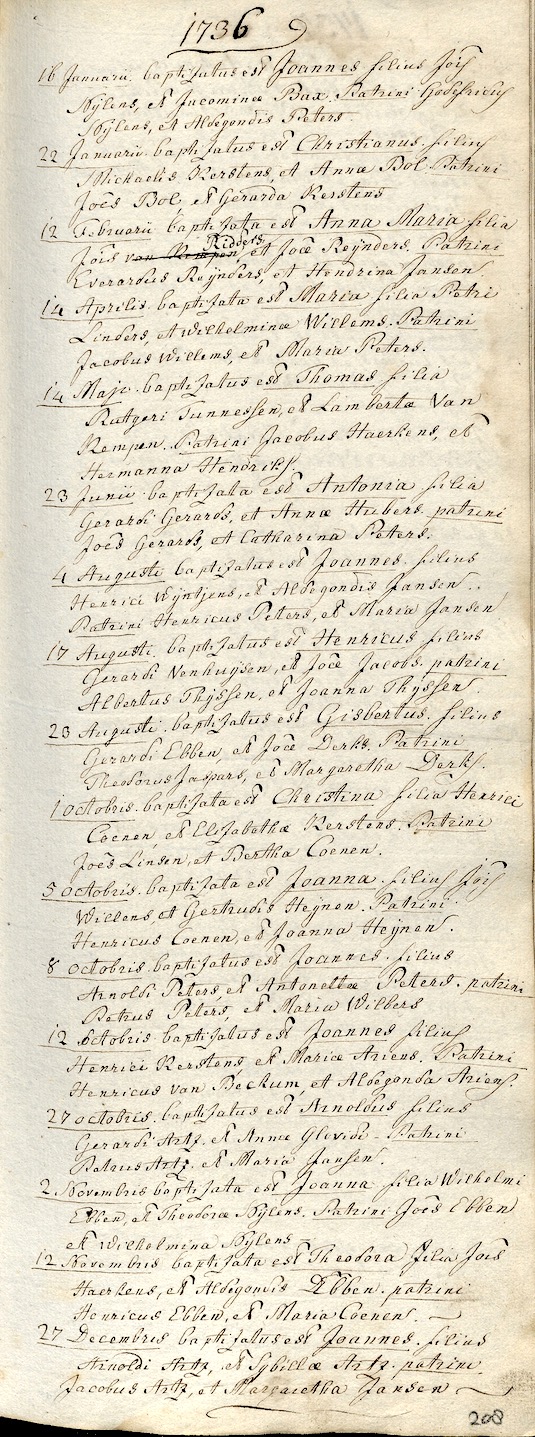 1736
16 Januarii baptisatus est Joannes filius Jois
Wijlens, et Jacominae Bax. Patrini Godefridus
Wijlens, et Aldegondis Peters.
22 Januarii baptisatus est Christianus filius
Michaelis Kerstens, et Annae Bol. Patrini
Joes Bol et Gerarda Kerstens
12 Februarii baptisata est Anna Maria filia
Jois van Kempen Ridders, et Joae Reijnders. Patrini
Everardus Reijnders, et Hendrina Jansen.
14 Aprilis baptisata est Maria filia Petri
Linders, et Wilhelminae Willems. Patrini
Jacobus Willems, et Maria Peters.
14 Maji baptisatus est Thomas filia
Rutgeri Tunnessen, et Lambertae Van
Kempen. Patrini Jacobus Haerkens, et
Hermanna Hendriks.
23 Junii baptisata est Antonia filia
Gerardi Gerards, et Annae Hubers. patrini
Joes Gerards, et Catharina Peters.
4 Augusti baptisatus est Joannes filius
Henrici Wijntjens, et Aldegondis Jansen.
Patrini Henricus Peters, et Maria Jansen
17 Augusti baptisatus est Henricus filius
Gerardi Venhuijsen, et Joae Jacobs. patrini
Albertus Thijssen, et Joanna Thijssen.
23 Augusti baptisatus est Gisbertus filius
Gerardi Ebben, et Joae Derks. Patrini
Theodorus Jaspars, et Margaretha Derks.
1 octobris baptisata est Christina filia Henrici
Coenen, et Elisabethae Kerstens. Patrini
Joes Linsen, et Bertha Coenen.
5 octobris baptisata est Joanna filius Jois
Willens et Gertrudis Heijnen. Patrini
Henricus Coenen, et Joanna Heijnen.
8 octobris baptisatus est Joannes filius
Arnoldi Peters, et Antonettae Peters. patrini
Petrus Peters, et Maria Wilbers
12 octobris baptisatus est Joannes filius
Henrici Kerstens, et Mariae Ariens. Patrini
Henricus van Beckum, et Aldegonda Ariens.
27 octobris baptisatus est Arnoldus filius
Gerardi Artz, et Annae Patrini
Petrus Artz, et Maria Jansen.
2 Novembris baptisata est Joanna filia Wilhelmi
Ebben, et Theodorae Wijlens. Patrini Joes Ebben
et Wilhelmina Wijlens
12 Novembris baptisata est Theodora filia Jois
Haerkens, et Aldegondis Ebben. patrini
Henricus Ebben, et Maria Coenen.
27 Decembris baptisatus est Joannes filius
Arnoldi Artz, et Sybillae Artz. patrini
Jacobus Artz, et Margaretha Jansen
208